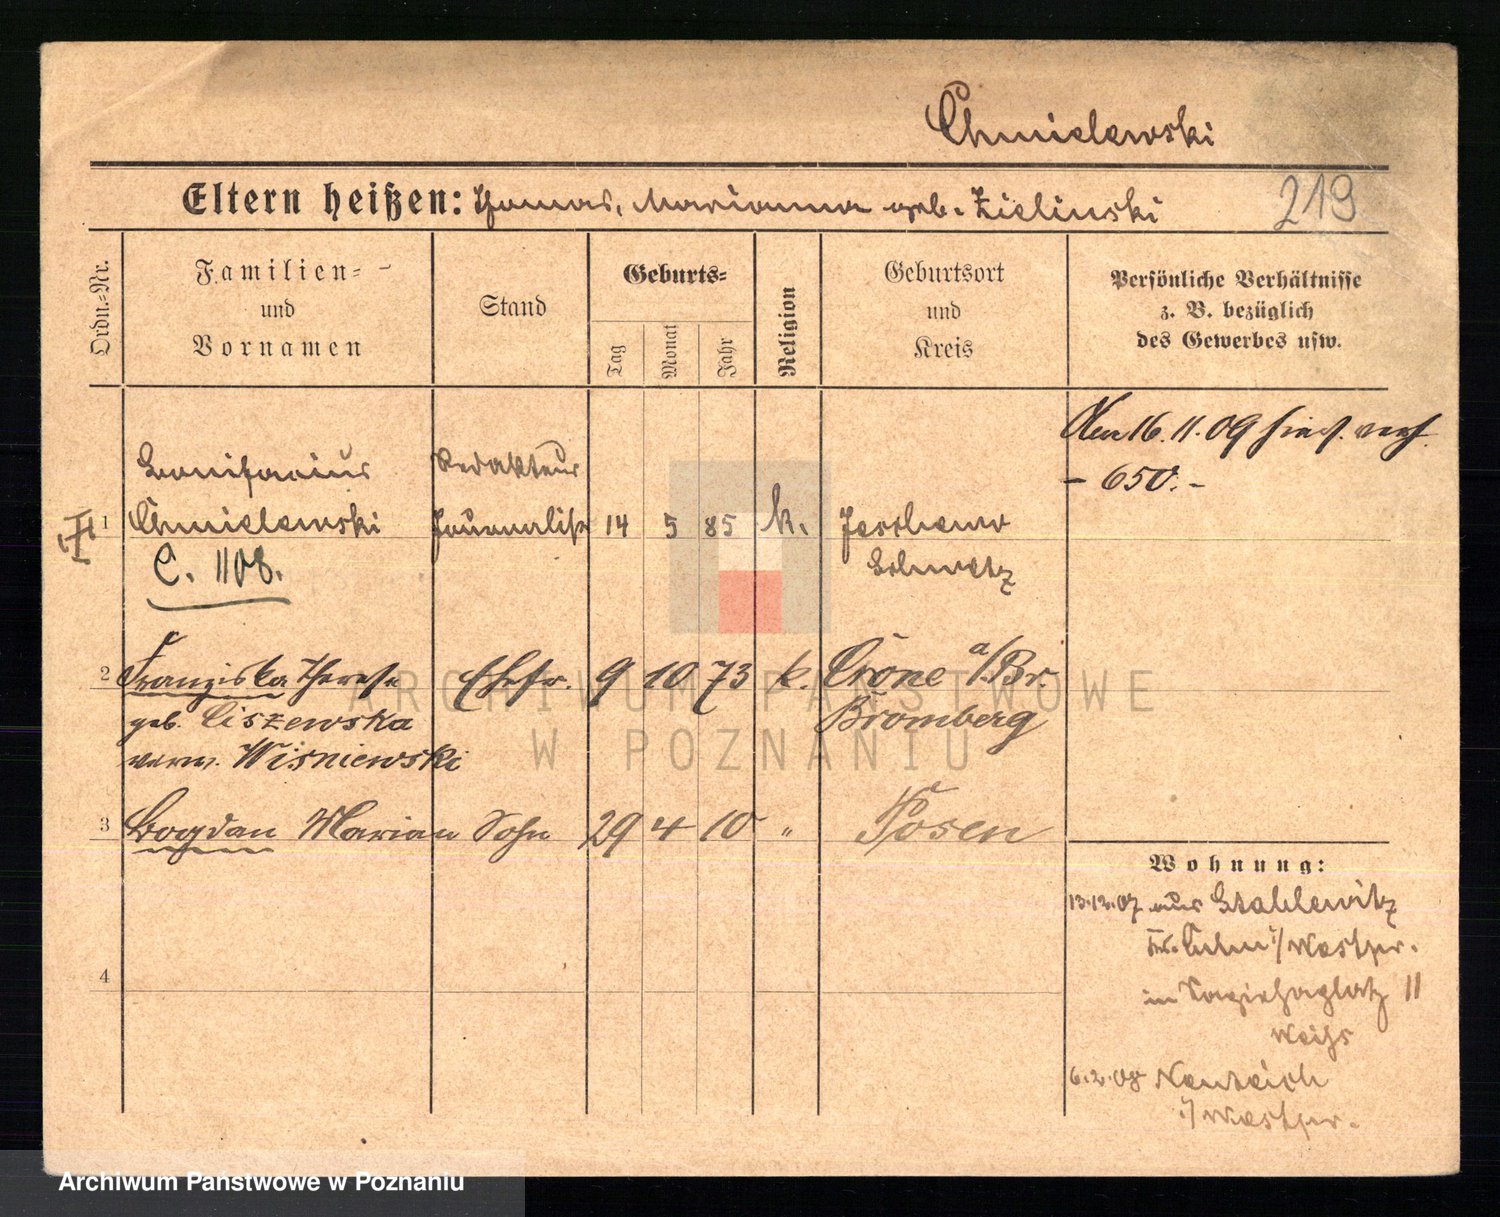 Chmielewski
Eltern heißen: Thomas, Marianna geb. Zielinski
219
Ordn.-Nr.
Familien-
und
Vornamen
Stand
Geburts-
Tag
Monat
Jahr
Religion
Geburtsort
und
Kreis
Persönliche Verhältnisse
z. B. bezüglich
des Gewerbes usw.
Den 16.11.09
- 650.-
Bonifacius Redakteur
1 Chmielewski Journalist 14 5 85 k. Jeschewo
C. 1108. Schwetz
2 Franziska Therese Ehefr. 9 10 73 k. Crone a/Br.
geb. Ciszewska Bromberg
verw. Wisniewski
3 Bogdan Marian Sohn 29 4 10 " Posen
4
Wohnung:
13.12.07 aus Stablewitz
Kr. Culm i/Westpr.
in Sapiehaplatz 11
Weihs
6.2.08 Neuteich
i/Westpr.
ARCHIWUM PAŃSTWOWE
W POZNANIU
Archiwum Państwowe w Poznaniu